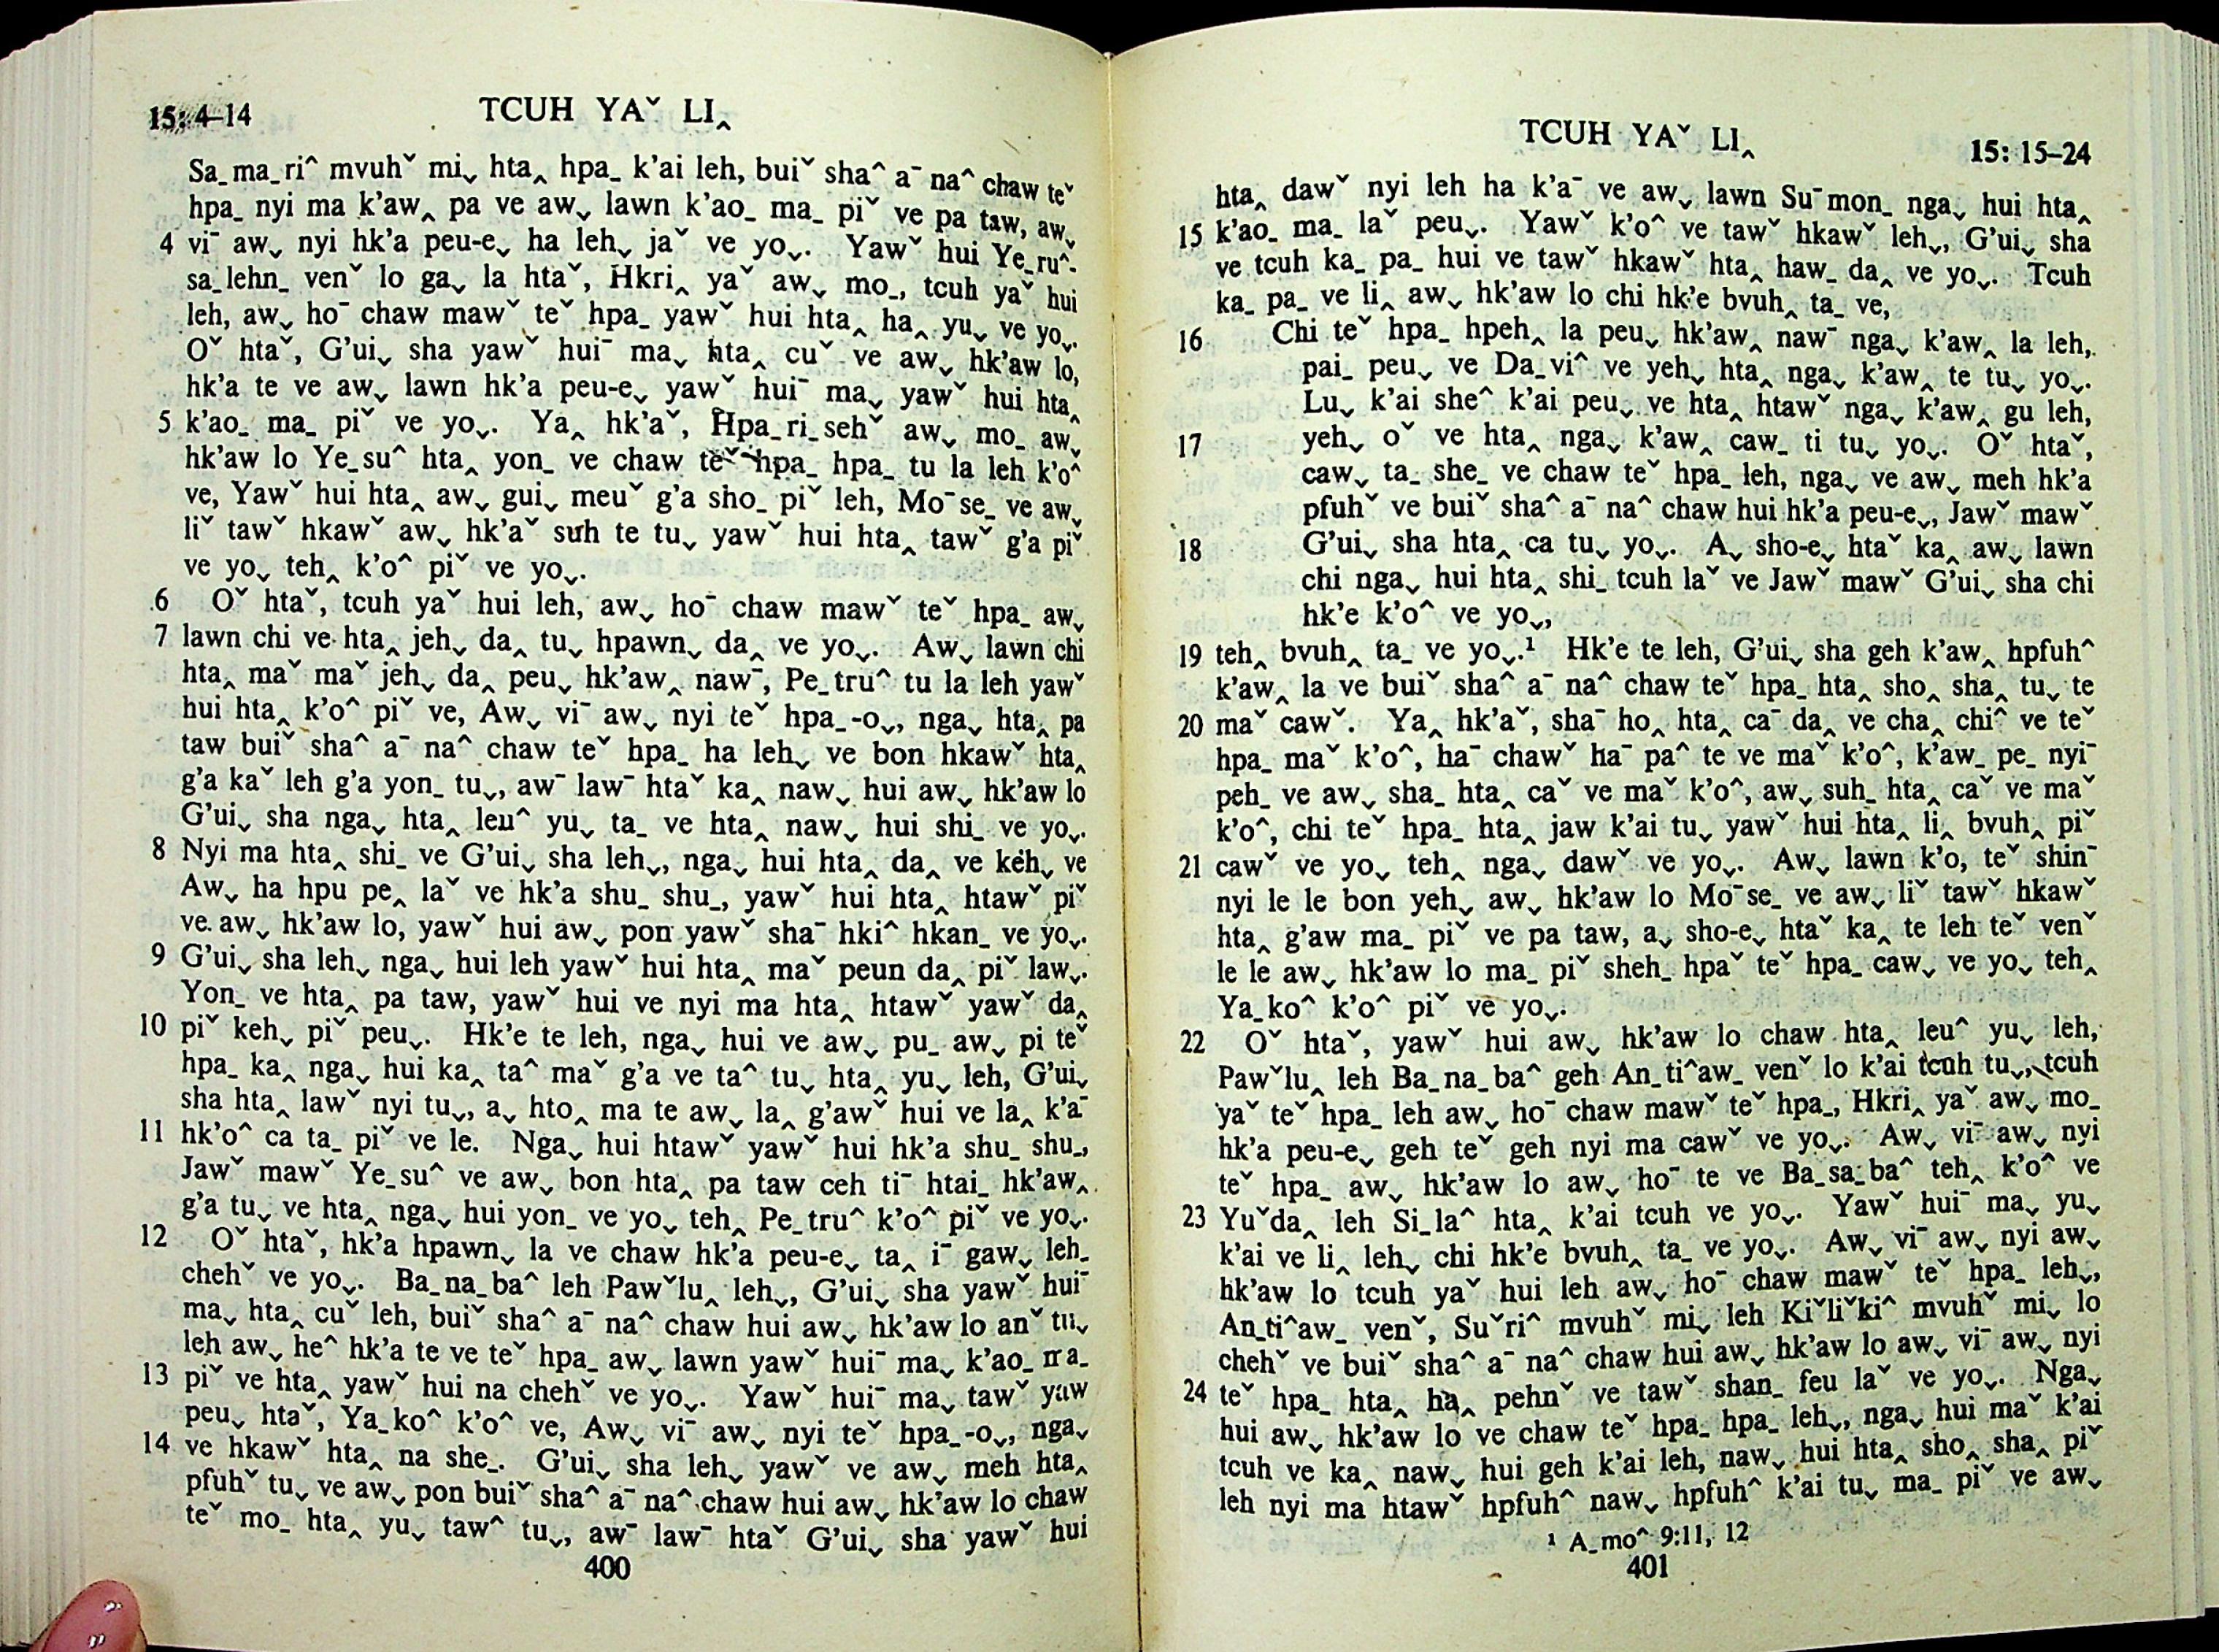 15: 4–14
TCUH YAˇ LI‸
Sa_ma_ri^ mvuhˇ miˬ hta‸ hpa_ k’ai leh, buiˇ sha^ aˉ na^ chaw teˇ
hpa_ nyi ma k’aw‸ pa ve awˬ lawn k’ao_ ma_ piˇ ve pa taw, awˬ
4 viˉ awˬ nyi hk’a peu-eˬ ha lehˬ jaˇ ve yoˬ. Yawˇ hui Ye_ru^-
sa_lehn_ venˇ lo gaˬ la htaˇ, Hkri‸ yaˇ awˬ mo_, tcuh yaˇ hui
leh, awˬ hoˉ chaw mawˇ teˇ hpa_ yawˇ hui hta‸ ha‸ yuˬ ve yoˬ.
Oˇ htaˇ, G’uiˬ sha yawˇ huiˉ maˬ hta‸ cuˇ ve awˬ hk’aw lo,
hk’a te ve awˬ lawn hk’a peu-eˬ yawˇ huiˉ maˬ yawˇ hui hta‸
5 k’ao_ ma_ piˇ ve yoˬ. Ya‸ hk’aˇ, Hpa_ri_sehˇ awˬ mo_ awˬ
hk’aw lo Ye_su^ hta‸ yon_ ve chaw teˇ hpa_ hpa_ tu la leh k’o^
ve, Yawˇ hui hta‸ awˬ guiˬ meuˇ g’a sho_ piˇ leh, Moˉse_ ve awˬ
liˇ tawˇ hkawˇ awˬ hk’aˇ suh te tuˬ yawˇ hui hta‸ tawˇ g’a piˇ
ve yoˬ teh‸ k’o^ piˇ ve yoˬ.
6 Oˇ htaˇ, tcuh yaˇ hui leh, awˬ hoˉ chaw mawˇ teˇ hpa_ awˬ
7 lawn chi ve hta‸ jehˬ da‸ tuˬ hpawnˬ da‸ ve yoˬ. Awˬ lawn chi
hta‸ maˇ maˇ jehˬ da‸ peuˬ hk’aw‸ nawˉ, Pe_tru^ tu la leh yawˇ
hui hta‸ k’o^ piˇ ve, Awˬ viˉ awˬ nyi teˇ hpa_-oˬ, ngaˬ hta‸ pa
taw buiˇ sha^ aˉ na^ chaw teˇ hpa_ ha lehˬ ve bon hkawˇ hta‸
g’a kaˇ leh g’a yon_ tuˬ, awˉ lawˉ htaˇ ka‸ nawˬ hui awˬ hk’aw lo
G’uiˬ sha ngaˬ hta‸ leu^ yuˬ ta_ ve hta‸ nawˬ hui shi_ ve yoˬ.
8 Nyi ma hta‸ shi_ ve G’uiˬ sha lehˬ, ngaˬ hui hta‸ da‸ ve kehˬ ve
Awˬ ha hpu pe‸ laˇ ve hk’a shu_ shu_, yawˇ hui hta‸ htawˇ piˇ
ve awˬ hk’aw lo, yawˇ hui awˬ pon yawˇ shaˉ hki^ hkan_ ve yoˬ.
9 G’uiˬ sha lehˬ, ngaˬ hui leh yawˇ hui hta‸ maˇ peun da‸ piˇ lawˬ.
Yon_ ve hta‸ pa taw, yawˇ hui ve nyi ma hta‸ htawˇ yawˇ da‸
10 piˇ kehˬ piˇ peuˬ. Hk’e te leh, ngaˬ hui ve awˬ pu_ awˬ pi teˇ
hpa_ ka‸ ngaˬ hui ka‸ ta^ maˇ g’a ve ta^ tuˬ hta‸ yuˬ leh, G’uiˬ
sha hta‸ lawˇ nyi tuˬ, aˬ hto‸ ma te awˬ la‸ g’awˇ hui ve la‸ k’aˉ
11 hk’o^ ca ta_ piˇ ve le. Ngaˬ hui htawˇ yawˇ hui hk’a shu_ shu_,
Jawˇ mawˇ Ye_su^ ve awˬ bon hta‸ pa taw ceh tiˉ htai_ hk’aw‸
g’a tuˬ ve hta‸ ngaˬ hui yon_ ve yoˬ teh‸ Pe_tru^ k’o^ piˇ ve yoˬ.
12 Oˇ htaˇ, hk’a hpawnˬ la ve chaw hk’a peu-eˬ ta‸ iˉ gawˬ leh_
chehˇ ve yoˬ. Ba_na_ba^ leh Pawˇlu‸ lehˬ, G’uiˬ sha yawˇ huiˉ
maˬ hta‸ cuˇ leh, buiˇ sha^ aˉ na^ chaw hui awˬ hk’aw lo anˇ tuˬ
leh awˬ he^ hk’a te ve teˇ hpa_ awˬ lawn yawˇ huiˉ maˬ k’ao_ ma_
13 piˇ ve hta‸ yawˇ hui na chehˇ ve yoˬ. Yawˇ huiˉ maˬ tawˇ yaw
peuˬ htaˇ, Ya_ko^ k’o^ ve, Awˬ viˉ awˬ nyi teˇ hpa_-oˬ, ngaˬ
14 ve hkawˇ hta‸ na she_. G’uiˬ sha lehˬ yawˇ ve awˬ meh hta‸
pfuhˇ tuˬ ve awˬ pon buiˇ sha^ aˉ na^ chaw hui awˬ hk’aw lo chaw
teˇ mo_ hta‸ yuˬ taw^ tuˬ, awˉ lawˉ htaˇ G’uiˬ sha yawˇ hui
400
TCUH YAˇ LI‸
15: 15–24
hta‸ dawˇ nyi leh ha k’aˉ ve awˬ lawn Suˉmon_ ngaˬ hui hta‸
15 k’ao_ ma_ laˇ peuˬ. Yawˇ k’o^ ve tawˇ hkawˇ lehˬ, G’uiˬ sha
ve tcuh ka_ pa_ hui ve tawˇ hkawˇ hta‸ haw_ da‸ ve yoˬ. Tcuh
ka_ pa_ ve li‸ awˬ hk’aw lo chi hk’e bvuh‸ ta_ ve,
16 Chi teˇ hpa_ hpeh‸ la peuˬ hk’aw‸ nawˉ ngaˬ k’aw‸ la leh,
pai_ peuˬ ve Da_vi^ ve yehˬ hta‸ ngaˬ k’aw‸ te tuˬ yoˬ.
Luˬ k’ai she^ k’ai peuˬ ve hta‸ htawˇ ngaˬ k’aw‸ gu leh,
17 yehˬ oˇ ve hta‸ ngaˬ k’aw‸ caw_ ti tuˬ yoˬ. Oˇ htaˇ,
cawˬ ta_ she_ ve chaw teˇ hpa_ leh, ngaˬ ve awˬ meh hk’a
pfuhˇ ve buiˇ sha^ aˉ na^ chaw hui hk’a peu-eˬ, Jawˇ mawˇ
18 G’uiˬ sha hta‸ ca tuˬ yoˬ. Aˬ sho-eˬ htaˇ ka‸ awˬ lawn
chi ngaˬ hui hta‸ shi_ tcuh laˇ ve Jawˇ mawˇ G’uiˬ sha chi
hk’e k’o^ ve yoˬ,
19 teh‸ bvuh‸ ta_ ve yoˬ.¹ Hk’e te leh, G’uiˬ sha geh k’aw‸ hpfuh^
k’aw‸ la ve buiˇ sha^ aˉ na^ chaw teˇ hpa_ hta‸ sho‸ sha‸ tuˬ te
20 maˇ cawˇ. Ya‸ hk’aˇ, shaˉ ho‸ hta‸ caˉ da‸ ve cha‸ chi^ ve teˇ
hpa_ maˇ k’o^, haˉ chawˇ haˉ pa^ te ve maˇ k’o^, k’aw_ pe_ nyiˉ
peh_ ve awˬ sha_ hta‸ caˇ ve maˇ k’o^, awˬ suh_ hta‸ caˇ ve maˇ
k’o^, chi teˇ hpa_ hta‸ jaw k’ai tuˬ yawˇ hui hta‸ li‸ bvuh‸ piˇ
21 cawˇ ve yoˬ teh‸ ngaˬ dawˇ ve yoˬ. Awˬ lawn k’o, teˇ shinˉ
nyi le le bon yehˬ awˬ hk’aw lo Moˉse_ ve awˬ liˇ tawˇ hkawˇ
hta‸ g’aw ma_ piˇ ve pa taw, aˬ sho-eˬ htaˇ ka‸ te leh teˇ venˇ
le le awˬ hk’aw lo ma_ piˇ sheh_ hpaˇ teˇ hpa_ cawˬ ve yoˬ teh‸
Ya_ko^ k’o^ piˇ ve yoˬ.
22 Oˇ htaˇ, yawˇ hui awˬ hk’aw lo chaw hta‸ leu^ yuˬ leh,
Pawˇlu‸ leh Ba_na_ba^ geh An_ti^aw_ venˇ lo k’ai tcuh tuˬ, tcuh
yaˇ teˇ hpa_ leh awˬ hoˉ chaw mawˇ teˇ hpa_, Hkri‸ yaˇ awˬ mo_
hk’a peu-eˬ geh teˇ geh nyi ma cawˇ ve yoˬ. Awˬ viˉ awˬ nyi
teˇ hpa_ awˬ hk’aw lo awˬ hoˉ te ve Ba_sa_ba^ teh‸ k’o^ ve
23 Yuˇda‸ leh Si_la^ hta‸ k’ai tcuh ve yoˬ. Yawˇ huiˉ maˬ yuˬ
k’ai ve li‸ lehˬ chi hk’e bvuh‸ ta_ ve yoˬ. Awˬ viˉ awˬ nyi awˬ
hk’aw lo tcuh yaˇ hui leh awˬ hoˉ chaw mawˇ teˇ hpa_ lehˬ,
An_ti^aw_ venˇ, Suˇri^ mvuhˇ miˬ leh Kiˇliˇki^ mvuhˇ miˬ lo
chehˇ ve buiˇ sha^ aˉ na^ chaw hui awˬ hk’aw lo awˬ viˉ awˬ nyi
24 teˇ hpa_ hta‸ ha‸ pehnˇ ve tawˇ shan_ feu laˇ ve yoˬ. Ngaˬ
hui awˬ hk’aw lo ve chaw teˇ hpa_ hpa_ lehˬ, ngaˬ hui maˇ k’ai
tcuh ve ka‸ nawˬ hui geh k’ai leh, nawˬ hui hta‸ sho‸ sha‸ piˇ
leh nyi ma htawˇ hpfuh^ nawˬ hpfuh^ k’ai tuˬ ma_ piˇ ve awˬ
¹ A_mo^ 9:11, 12
401